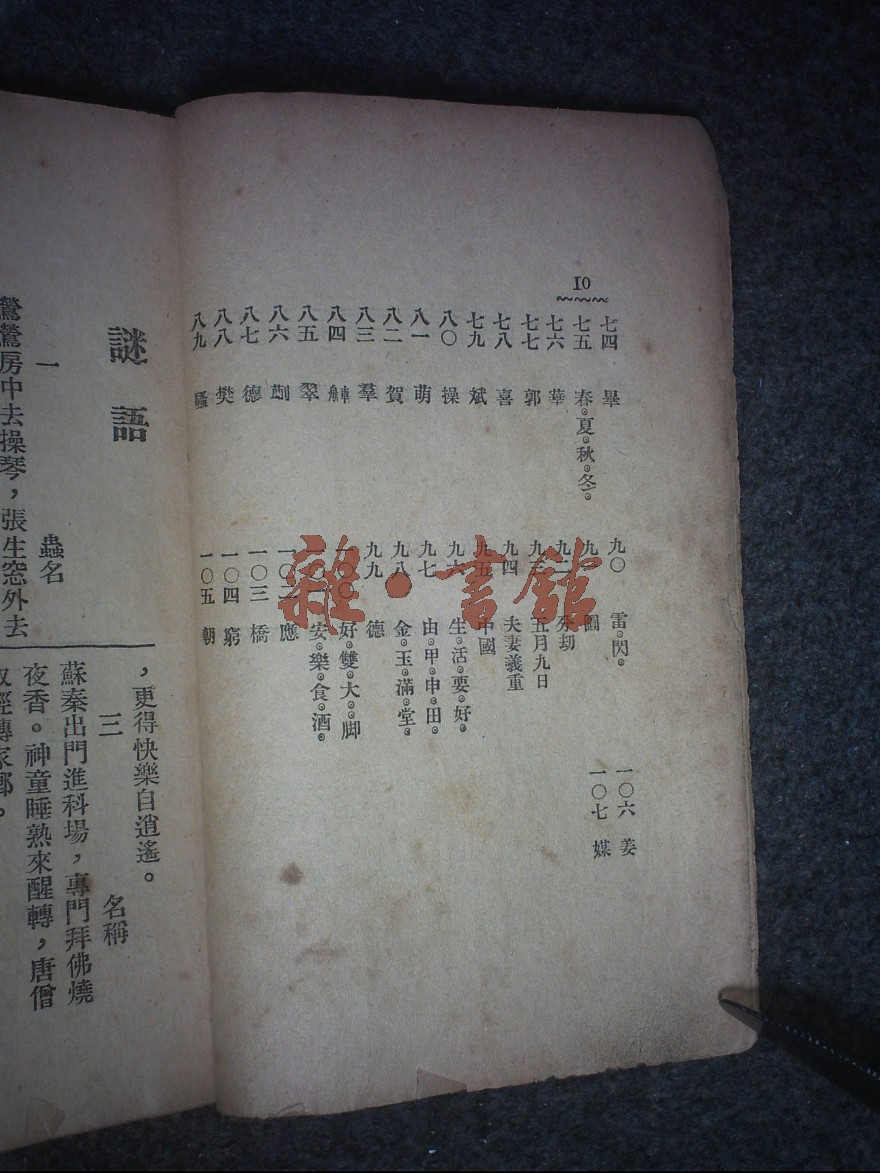 10
七四 畢
七五 春。夏。秋。冬。
七六 華
七七 郭
七八 喜
七九 斌
八〇 操
八一 萌
八二 賀
八三 羣
八四
八五 翠
八六
八七 德
八八 樊
八九
九〇 雷。閃。
九一 圖
九二 死劫
九三 五月九日
九四 夫妻義重
九五 中國
九六 生。活。要。好。
九七 由。甲。申。田。
九八 金。玉。滿。堂。
九九 德
一〇〇 好。雙。大。脚
一〇一 安。樂。食。酒。
一〇二 應
一〇三 橋
一〇四 窮
一〇五 朝
一〇六 姜
一〇七 媒
謎語
一 蟲名
鶯鶯房中去操琴，張生窓外去
，更得快樂自逍遙。
三 名稱
蘇秦出門進科場，專門拜佛燒
夜香。神童睡熟來醒轉，唐僧
取經轉家鄉。
雜·書館